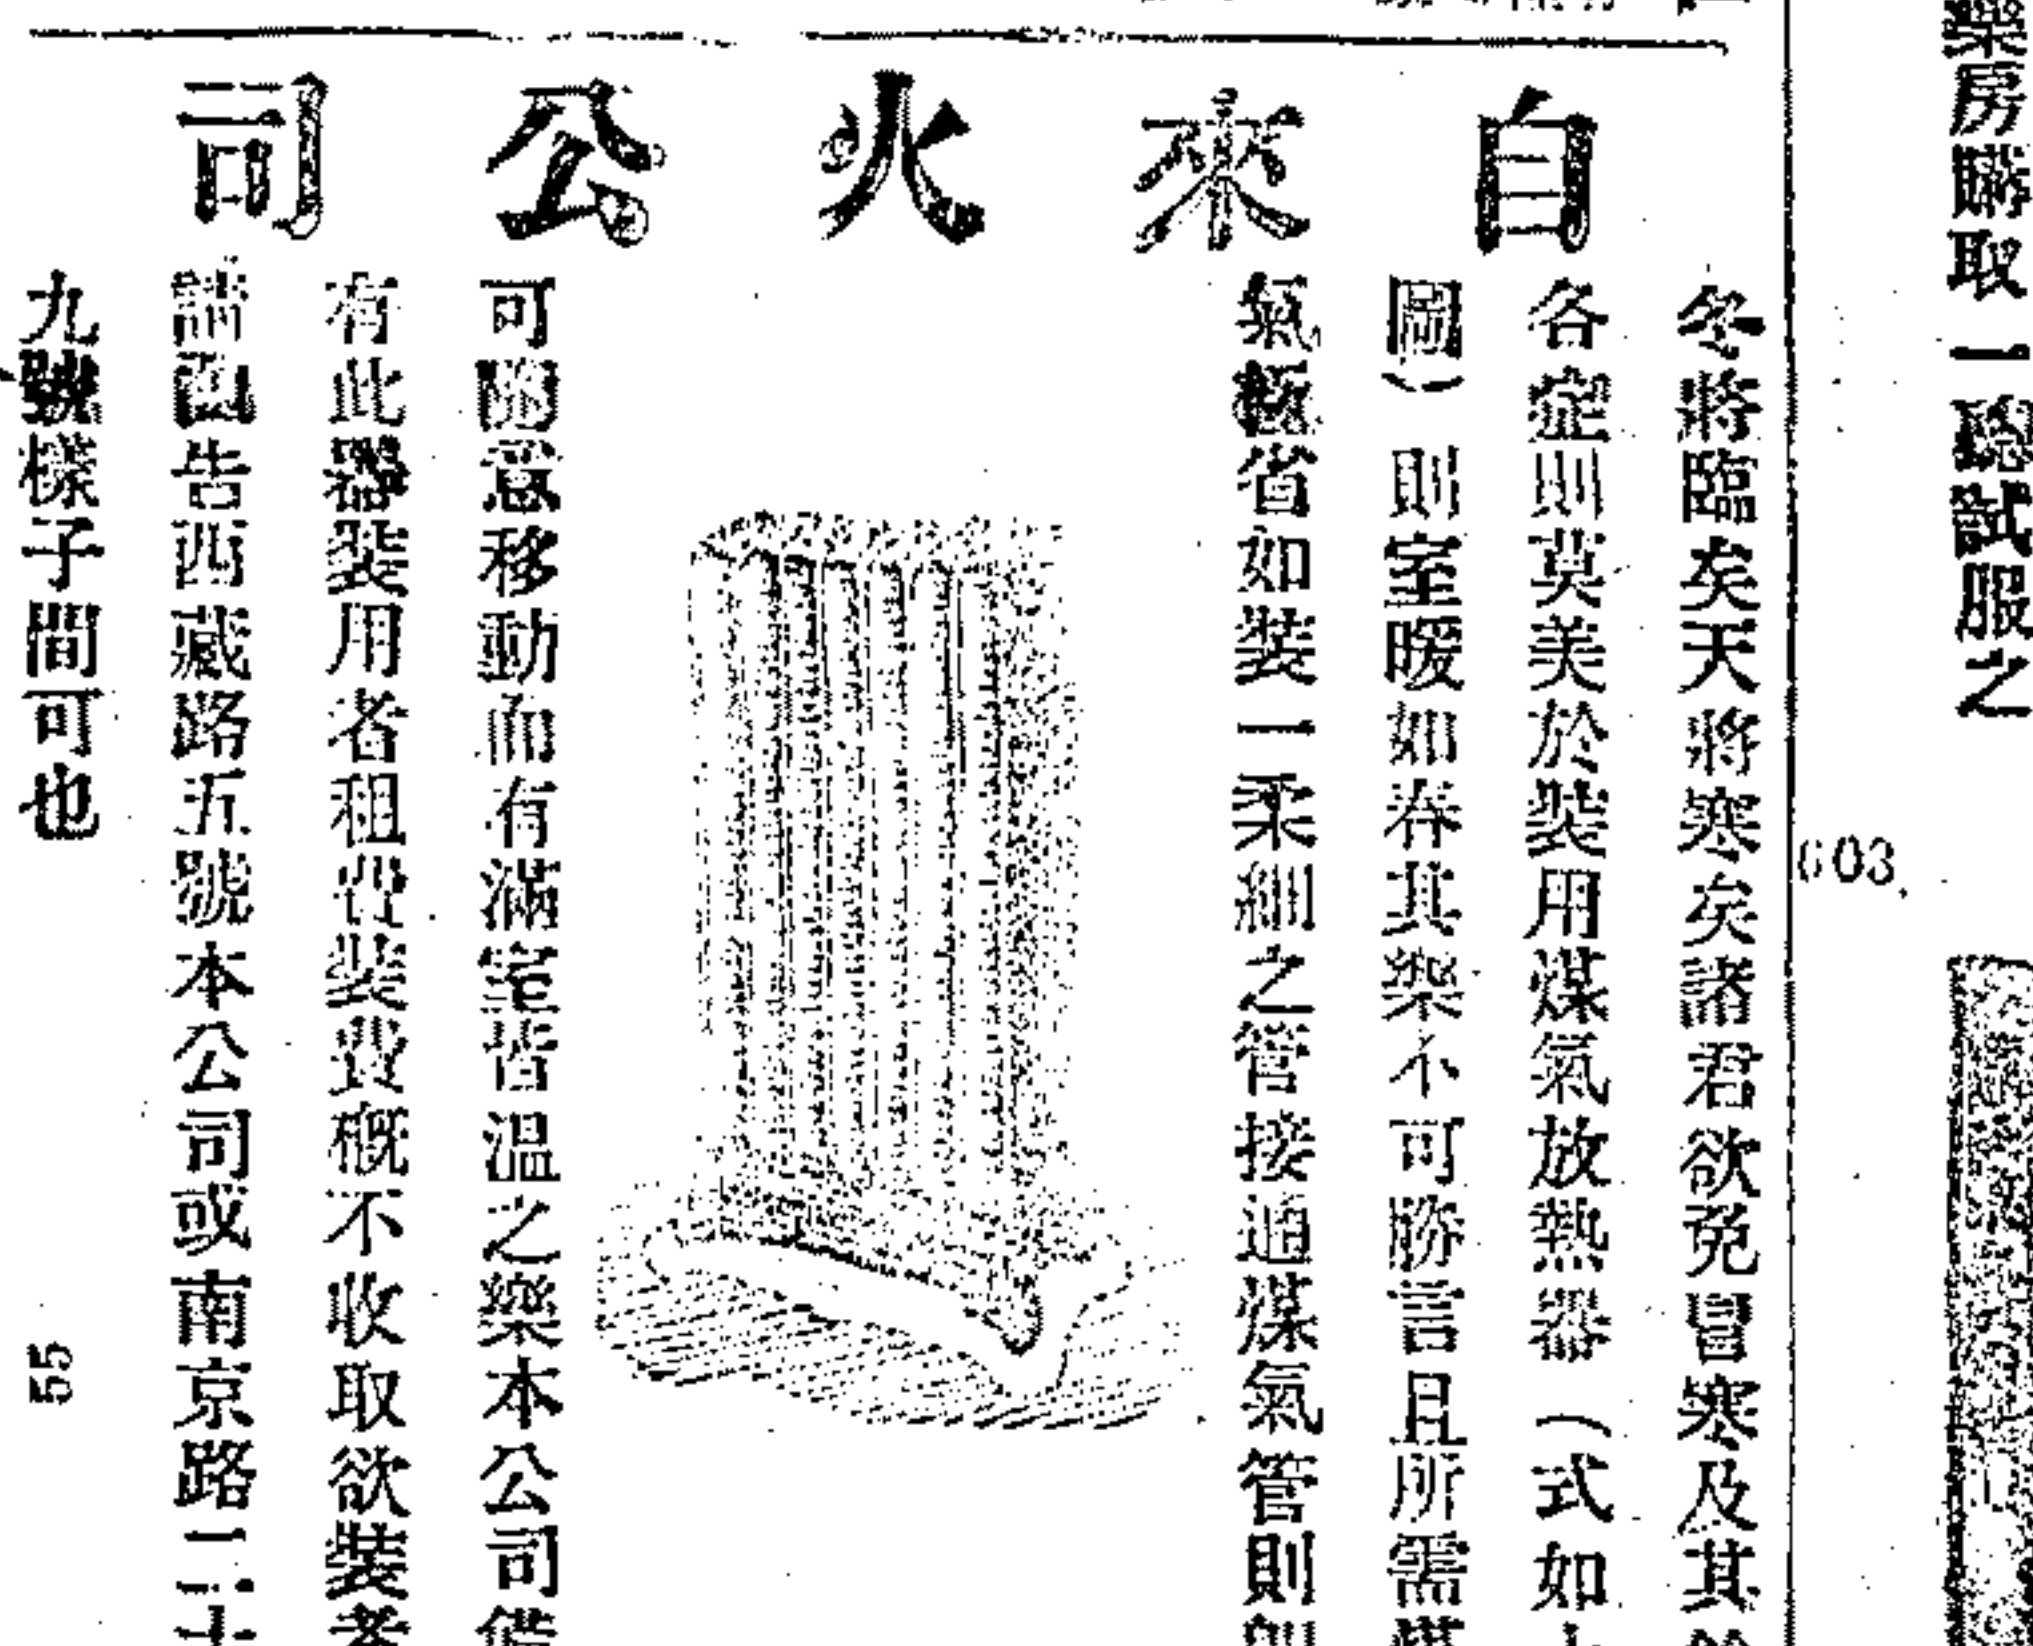 藥房購取一瓶試服之
603
自來火公司
冬將臨矣天將寒矣諸君欲免冒寒及其
各症則莫美於裝用煤氣放熱器（式如
圖）則室暖如春其樂不可勝言且所需煤
氣極省如裝一柔細之管接通煤氣管則
可隨意移動而有滿室皆溫之樂本公司備
有此器裝用者租費裝費概不收取欲裝者
請函告西藏路五號本公司或南京路二十
九號樣子間可也
55